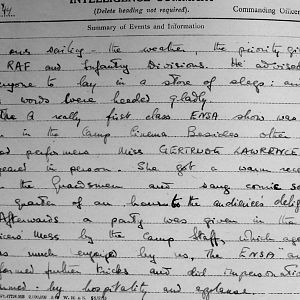 INTELLIGENCE SUMMARY
(Delete heading not required).
Commanding Officer
Summary of Events and Information
our sailing - the weather, the priority gi
RAF and Infantry Divisions. He advised
anyone to lay in a store of sleep: and
words were heeded gladly.
A really first class ENSA show was
in the Camp Cinema Besides other
performers Miss GERTRUDE LAWRENCE
appeared in person. She got a warm rece
the Guardsmen and sang comic so
quarter of an hour to the audiences delig
Afterwards a party was given in the
Mess by the Camp Staff, which ag
was much enjoyed by us, the ENSA ar
formed further tricks and did impersonation
by hospitality and applause